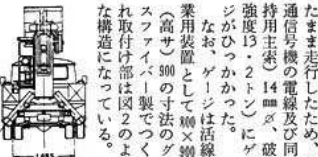 たまま走行したため、
通信号機の電線及び同
持用主索）14㎜⌀、破
強度13・2トン）にゲ
ジがひっかかった。
なお、ゲージは活線
業用装置として800×900
（高サ）900の寸法のグ
スファイバー製でつく
れ取付け部は図2のよ
な構造になっている。
1485